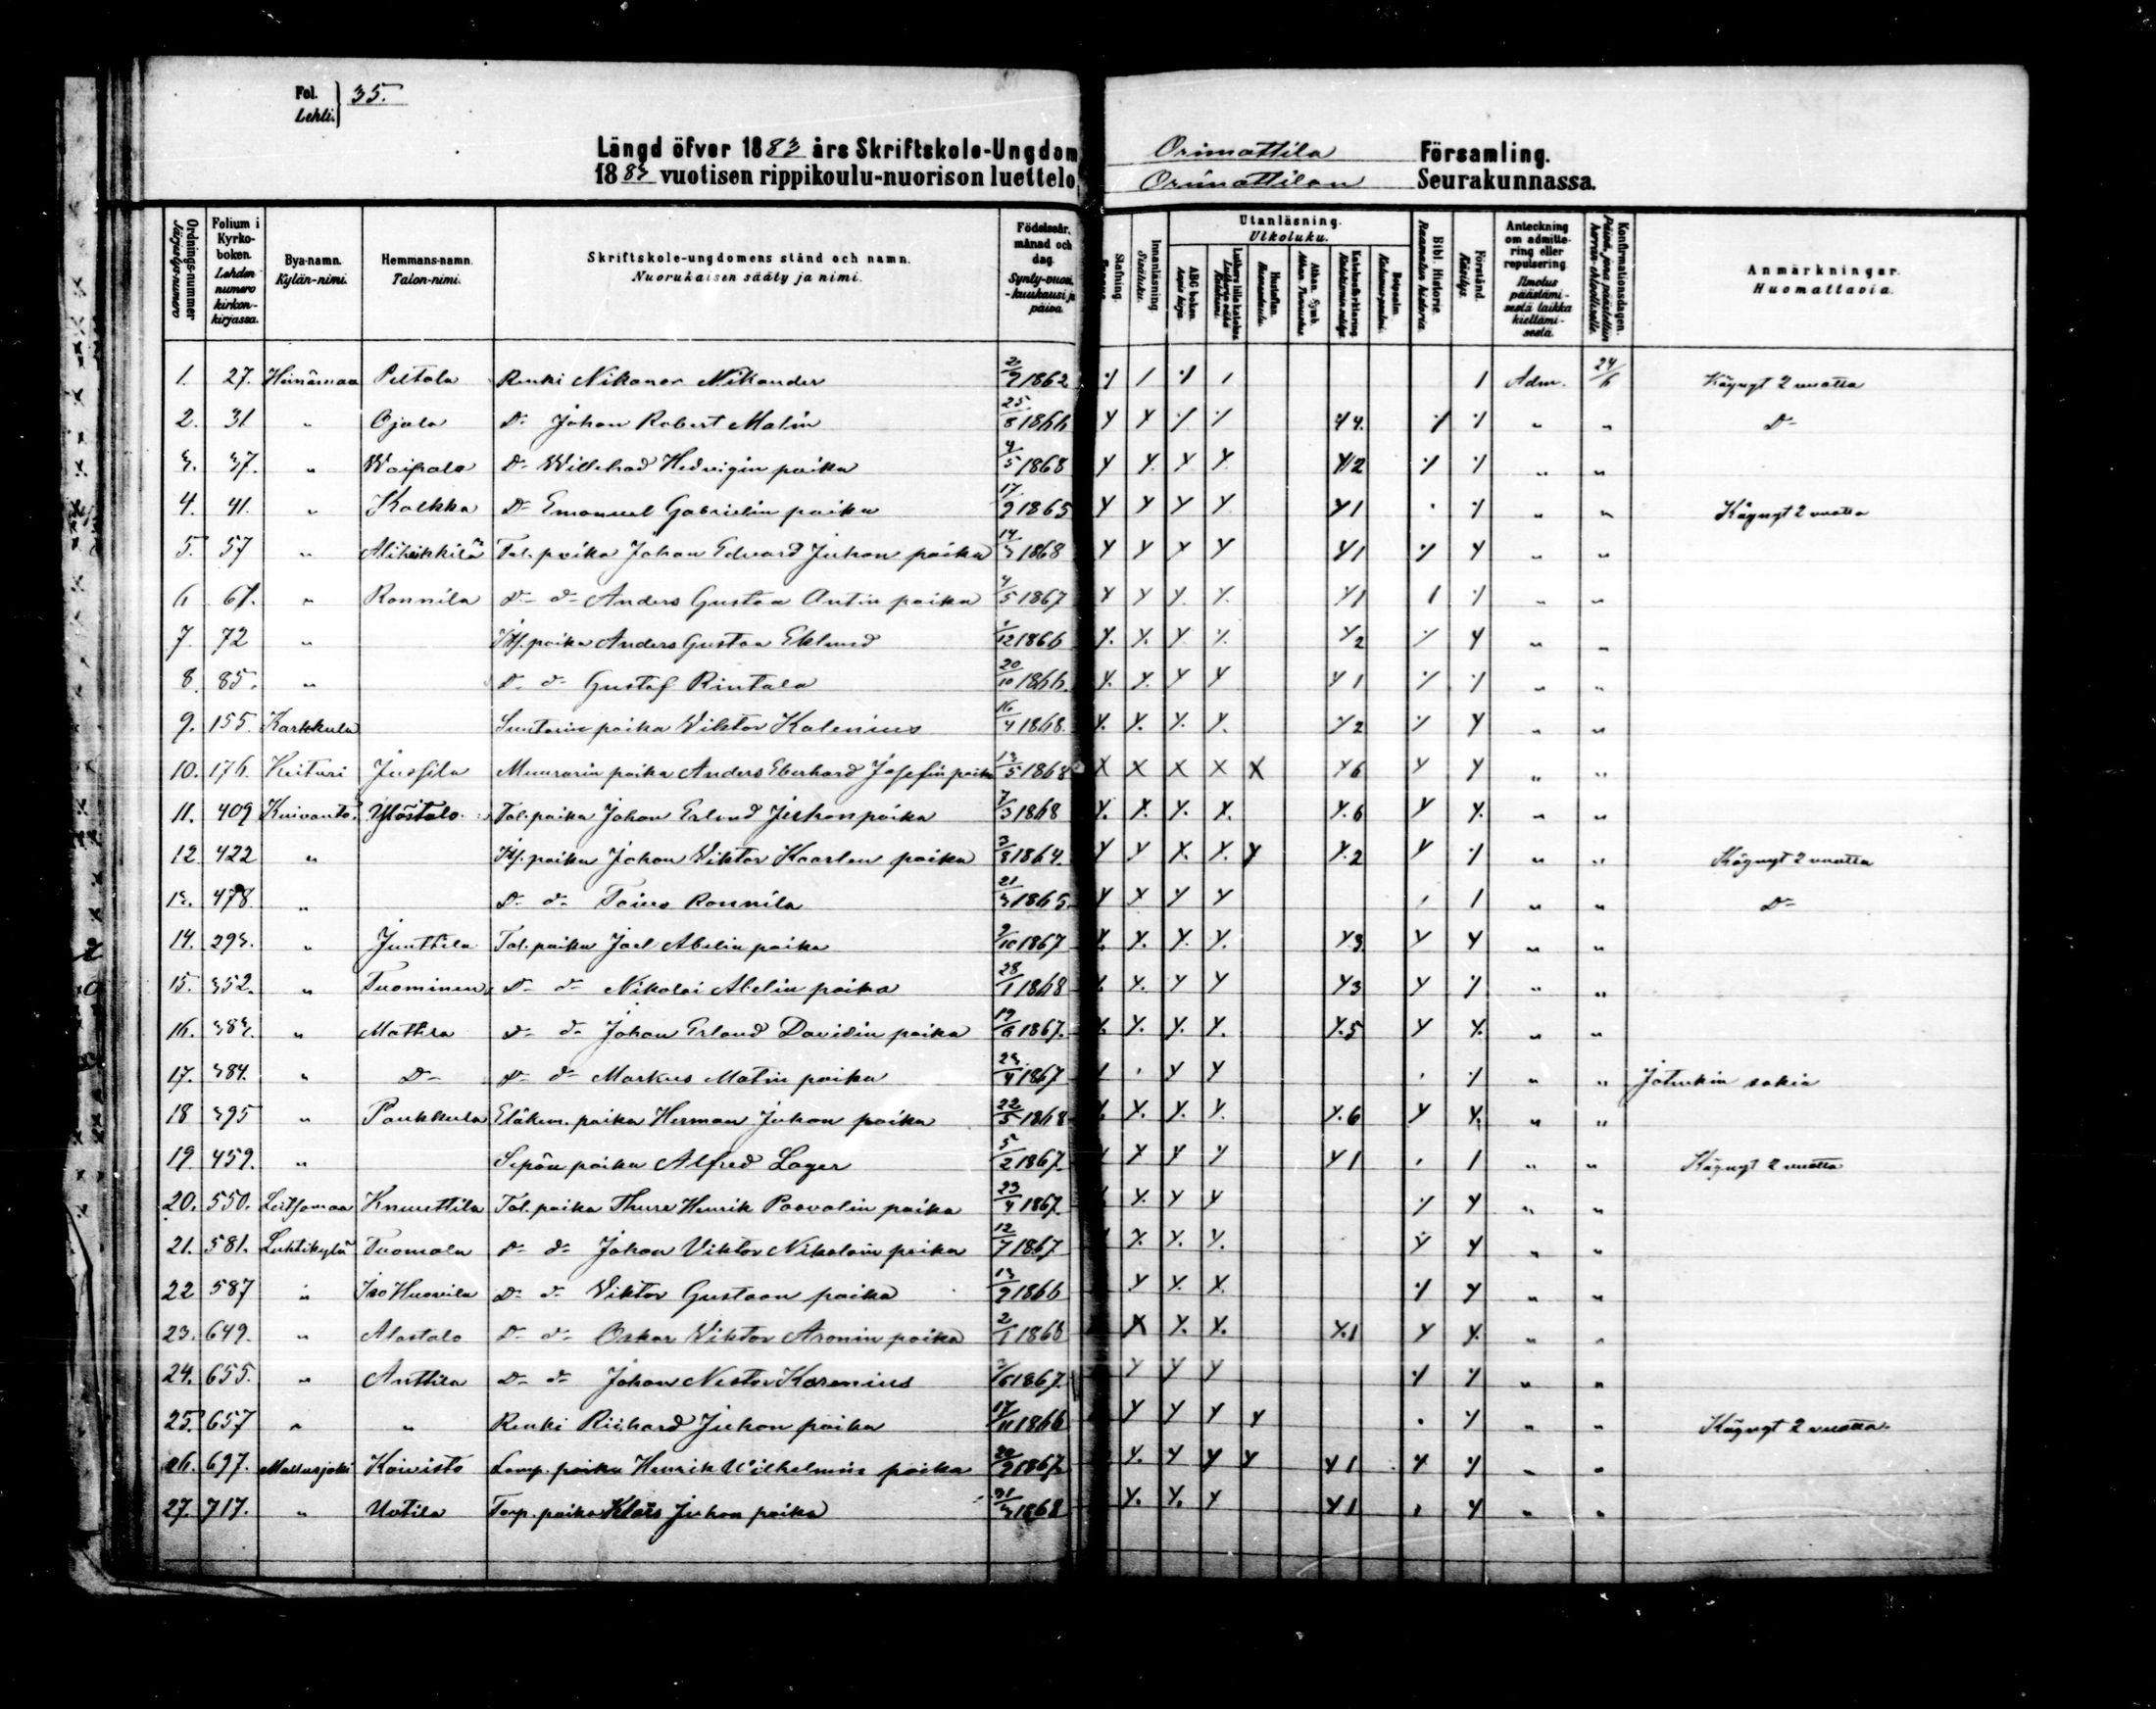 Fol. 35.
Lehti.
Längd öfver 1883 års Skriftskole-Ungdom Orimattila Församling.
1883 vuotisen rippikoulu-nuorison luettelo Orimattilan Seurakunnassa.
Ordnings-nummer Järjestys-numero
Folium i Kyrko-boken. Lehden numero kirkon-kirjassa.
Bya-namn. Kylän-nimi.
Hemmans-namn. Talon-nimi.
Skriftskole-ungdomens stånd och namn. Nuorukaisen sääty ja nimi.
Födelseår, månad och dag. Synty-vuosi, -kuukausi ja päivä.
Stafning.
Innanläsning. Sisäluku.
Utanläsning. Ulkoluku.
ABC boken. Aapis kirja.
Luthers lilla katekes
Hustaflan. Huoneentaulu.
Athan. Symb. Athan. Tunnustus.
Katekesförklaring
Botpsalm. Katumus-psalmi.
Bibl. Historie. Raamatun historia.
Förstånd. Käsitys.
Anteckning om admitte-ring eller repulsering. Ilmotus päästämi-sestä taikka kieltämi-sestä.
Konfirmationsdagen. Päivä, jona päästettiin herran-ehtoolliselle.
Anmärkningar. Huomattavia.
1. 27. Heinämaa Peltola Renki Nikanor Nikander 2/9 1862 ⁒ / ⁒ / / Adm. 24/6 Käynyt 2 vuotta
2. 31 " Ojala D:o Johan Robert Malin 25/8 1866 Y Y ⁒ ⁒ Y4. ⁒ ⁒ " " D:o
3. 37. " D:o Willehad Hedvigin poika 4/5 1868 Y Y Y Y Y2 ⁒ ⁒ " "
4. 41. " Kalkka D:o Emanuel Gabrielin poika 17/9 1865 Y Y Y Y Y1 . ⁒ " " Käynyt 2 vuotta
5. 57 " Tal. poika Johan Edvard Juhon poika 14/3 1868 Y Y Y Y Y1 ⁒ Y " "
6 67. " Ronnila D:o d:o Anders Gustaa Antin poika 4/5 1867 Y Y Y Y Y1 / ⁒ " "
7. 72 " Its. poika Anders Gustaa Eklund 1/12 1866 Y. Y. Y ⁒ Y2 ⁒ Y " "
8. 85. " D:o d:o Gustaf Rintala 20/10 1866. Y. Y. Y Y Y1 ⁒ ⁒ " "
9. 155. Karkkula Suutarin poika Viktor Kalenius 16/4 1868. Y. Y. Y. Y. Y2 ⁒ Y " "
10. 176. Keituri Jussila Muurarin poika Anders Eberhard Josefin poika 13/5 1868 X X X X X Y6 Y Y " "
11. 409 Kuivanto Yliöstalo Tal. poika Johan Erland Juhon poika 7/3 1868 Y. Y. Y. Y. Y.6 Y Y. " "
12 422 " Its. poika Johan Wiktor Kaarlen poika 3/8 1864. Y Y Y. Y. Y Y.2 Y ⁒ " " Käynyt 2 vuotta
13. 478. " D:o d:o Ronnila 21/3 1865. Y Y Y Y / / " " D:o
14. 293. " Junttila Tal. poika Joel Abelin poika 9/10 1867 Y. Y. Y. Y. Y3 Y Y " "
15. 352. " Tuominen D:o d:o Nikolai Abelin poika 28/1 1868 Y. Y Y Y3 Y ⁒ " "
16. 383. " Mattila D:o d:o Johan Erland Davidin poika 19/6 1867. Y. Y. Y. Y.5 Y Y. " "
17. 384. " D:o D:o d:o Markus Matin poika 23/4 1867 / . Y Y . ⁒ " " Jotenkin sokia
18 395 " Paukkula Eläkem. poika Herman Juhon poika 22/5 1868 Y. Y. Y. Y.6 Y Y. " "
19. 459. " Sepän poika Alfred Lager 5/2 1867. Y Y Y Y1 . / " " Käynyt 2 vuotta
20. 550. Leitsamaa Knuuttila Tal. poika Thure Henrik Paavolin poika 23/4 1867. Y. Y Y ⁒ Y " "
21. 581. Luhtikylä Tuomala D:o d:o Johan Viktor Nikolain poika 12/7 1867 Y. Y. Y. Y Y " "
22 587 " Iso Huovila D:o d:o Viktor Gustaan poika 13/9 1866 Y Y. Y. ⁒ Y " "
23. 649. " Alastalo D:o d:o Oskar Viktor Aronin poika 2/1 1866 X Y. Y. Y.1 Y Y. " "
24. 655. " Anttila D:o d:o Johan Nestor Korenius 3/6 1867. Y Y Y ⁒ ⁒ " "
25. 657 " " Renki Richard Juhon poika 17/11 1866 Y Y Y Y . Y " " Käynyt 2 vuotta.
26. 697. Mallusjoki Koivisto Lamp. poika Henrik Wilhelmin poika 20/2 1867. Y. Y Y Y Y1 Y ⁒ " "
27. 717. " Uotila Torp. poika Klaes Juhon poika 31/3 1868 Y. Y. Y Y1 , Y " "